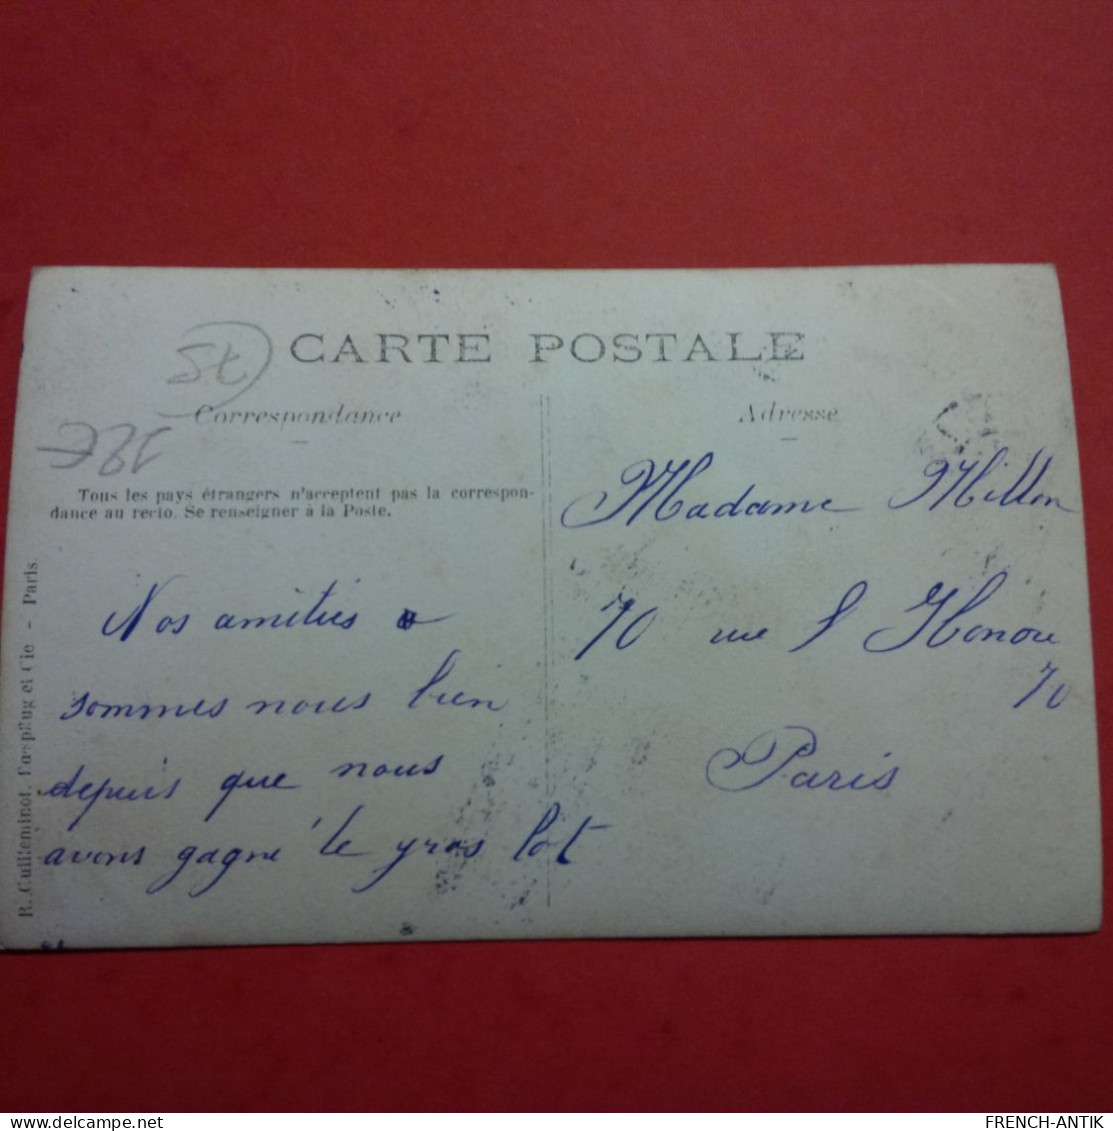 CARTE POSTALE
75
Correspondance
Adresse
18€
Tous les pays étrangers n'acceptent pas la correspon-
dance au recto. Se renseigner à la Poste.
Nos amitiés
sommes nous bien
depuis que nous
avons gagné le gros lot
Madame Millon
70 rue S Honore
70
Paris
R. Guilleminot, Bœspflug et Cie - Paris.
delcampe.net
FRENCH-ANTIK